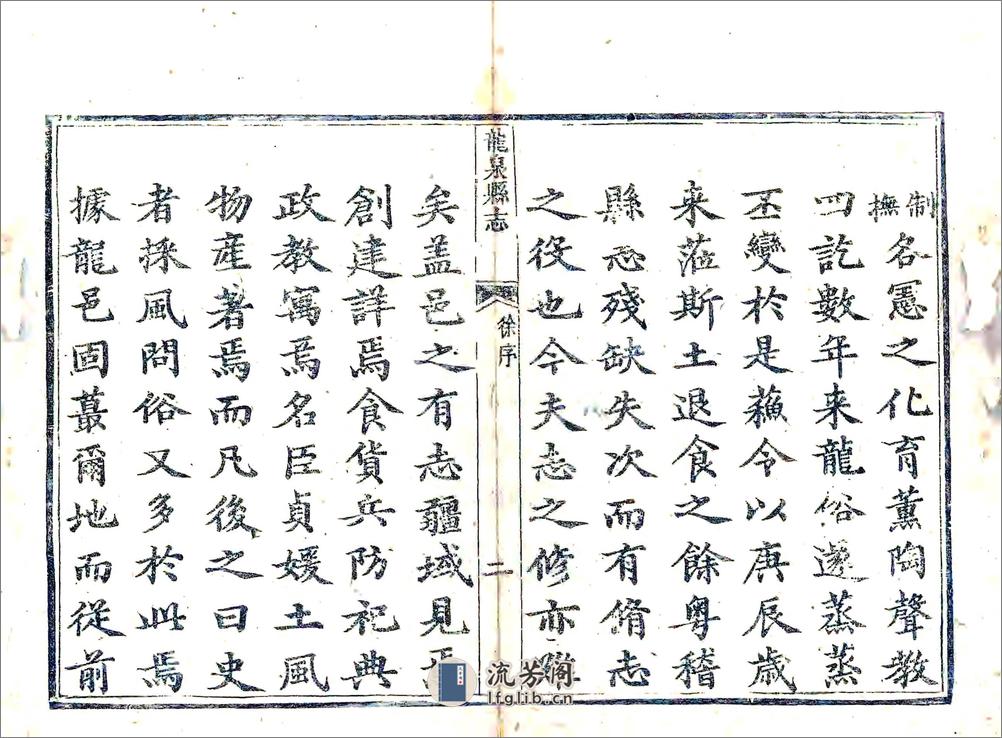 制撫名憲之化育薰陶聲教
四訖數年来龍俗遂蒸蒸
丕變於是蘓令以庚辰歳
来蒞斯土退食之餘粤稽
縣志殘缺失次而有脩志
之役也今夫志之修亦
龍泉縣志 徐序 二
矣盖邑之有志疆域見焉
創建詳焉食貨兵防祀典
政教寓焉名臣貞媛土風
物産著焉而凡後之曰史
者採風問俗又多於此焉
據龍邑固蕞爾地而従前
流芳阁
lfglib.cn